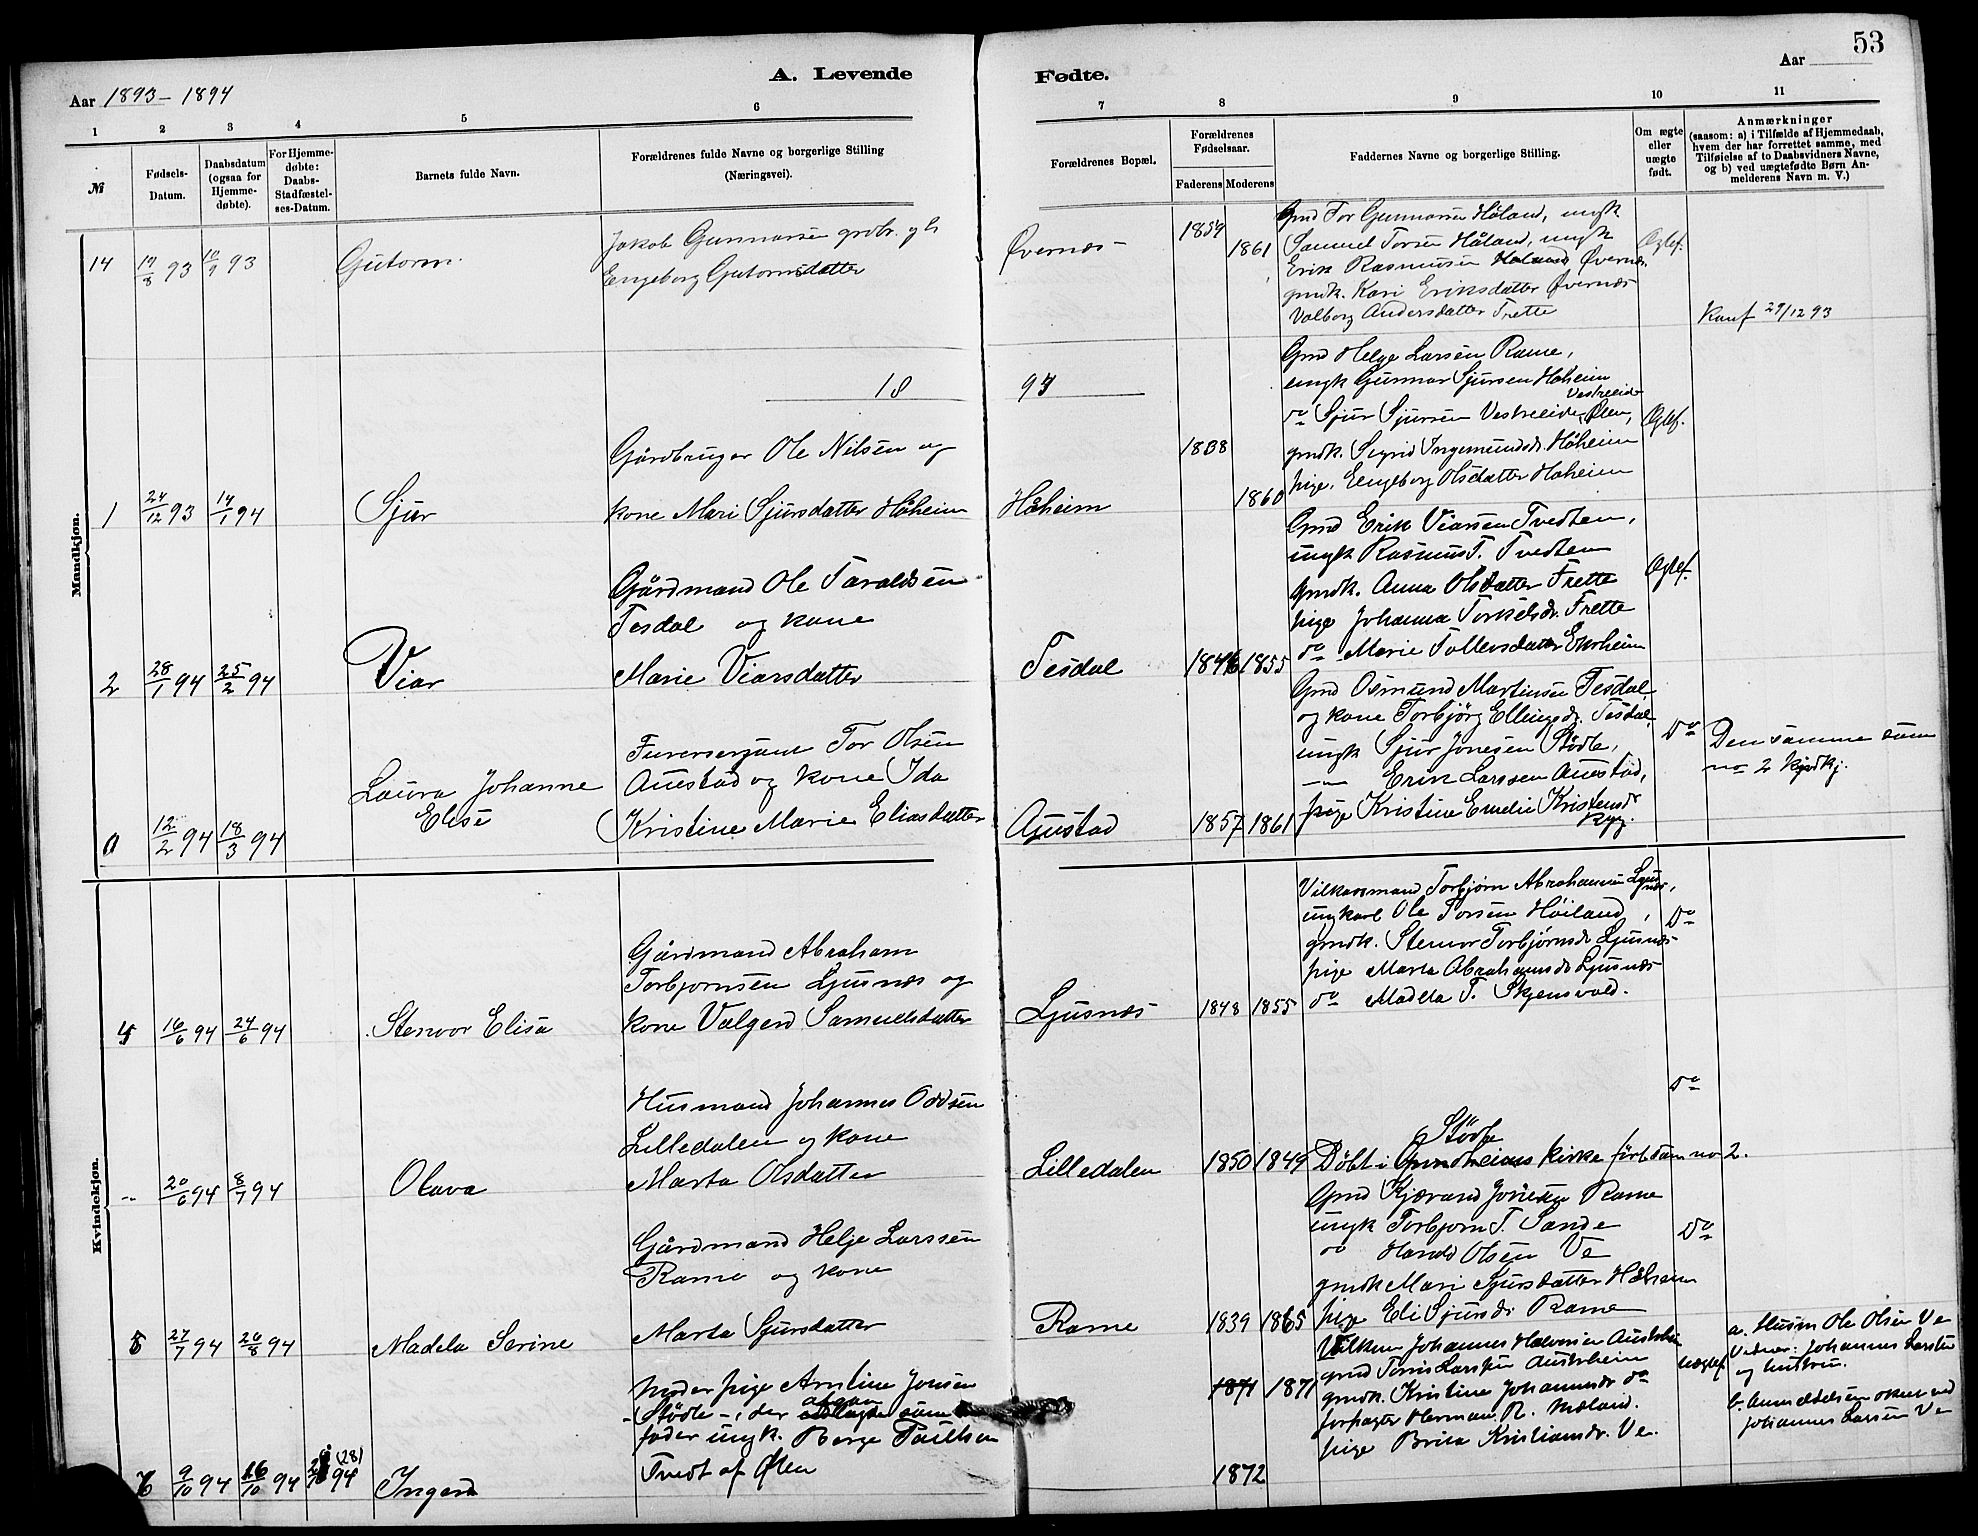 53
A. Levende
Fødte.
Aar
Aar 1893 - 1894
1 2 3 4 5 6 7 8 9 10 11
№
Fødsels-
Datum.
Daabsdatum
(ogsaa for
Hjemme-
døbte).
For Hjemme-
døbte:
Daabs-
Stadfæstel-
ses-Datum.
Barnets fulde Navn.
Forældrenes fulde Navne og borgerlige Stilling
(Næringsvei).
Forældrenes Bopæl.
Forældrenes
Fødselsaar.
Faderens Moderens
Faddernes Navne og borgerlige Stilling.
Om ægte
eller
uægte
født.
Anmærkninger
(saasom: a) i Tilfælde af Hjemmedaab,
hvem der har forrettet samme, med
Tilføielse af to Daabsvidners Navne,
og b) ved uægtefødte Børn An-
melderens Navn m. V.)
Mandkjøn.
14 19/8 93 10/9 93
Gutorm
Jakob Gunnarsen
Engeborg Gutormsdatter
Øvernæs
1859
1861
Gmd Tor Gunnarsen Håland, ungk
Samuel Torsen Håland, ungk
Erik Rasmusen Øvernæs
gmdk. Kari Eriksdatter Øvernæs
Valborg Andersdatter Frette
Ægtef.
Konf 29/12 93
18
94
1 24/12 93 14/1 94
Sjur
Gårdbruger Ole Nilsen og
kone Mari Sjursdatter Håheim
Håheim
1860
Gmd Helge Larsen Rame,
ungk Gunnar Sjursen Håheim
do Sjur Sjursen Vestreeide, Ølen,
gmdk. Sigrid Ingemundsdr. Håheim
pige. Engeborg Olsdatter Håheim
Ægtef.
2 28/1 94 25/2 94
Viar
Gårdmand Ole Taraldsen
Tesdal og kone
Marie Viarsdatter
Tesdal
1846 1855
Gmd Erik Viarsen Tvedten,
ungk Rasmus T. Tvedten
gmdk. Anna Olsdatter Frette
pige Johanna Torkelsdr. Frette
do Marie Tollevsdatter
Ægtef.
0 12/2 94 18/3 94
Laura Johanne
Elise
Furersersjant Tor Olsen
Auestad og kone Ida
Kristine Marie Eliasdatter
Auestad
1857 1861
Gmd Osmund Martinsen Tesdal
og kone Torbjørg Ellingsdr. Tesdal,
ungk Sjur Jonesen Stødle,
— Erik Larssen Auestad,
pige Kristine Emelie Kristensdr
Do
Den samme som
no 2 kvindkj.
Kvindekjøn.
4 16/6 94 24/6 94
Stenvor Elisa
Gårdmand Abraham
Torbjornsen Ljusnæs og
kone Valgerd Samuelsdatter
Ljusnæs
1848 1855
Vilkaarsmand Torbjørn Abrahamsen Ljusnæs,
ungkarl Ole Torsen Høiland,
gmdk. Stenvor Torbjørnsdr Ljusnæs
pige Marta Abrahamsdr Ljusnæs
do Madela T. Skjensvold.
Do
„ 20/6 94 8/7 94
Olava
Husmand Johannes Oddsen
Lilledalen og kone
Marta Olsdatter
Lilledalen
1850 1849
Stødle
Døbt i Grindheims kirke før som no 2.
Do
5 27/7 94 26/8 94
Madela Serine
Gårdmand Helje Larssen
Rame og kone
Marta Sjursdatter
Rame
1839 1865
Gmd Kjærand Rame
ungk Torbjorn T. Sande
do Harald Olsen Ve
gmdk Mari Sjursdatter Håheim
pige Eli Sjursdr Rame
Do
6 9/10 94 16/10 94 (28)
Ingerd
Moder pige Arntine Jonsen
Stødle -, der som
fader ungk. Børge Paulsen
Tvedt af Ølen
1871 1871
1872
Johannes Halvorsen Austrheim
gmd Tønnes Larssen Austrheim
gmdk. Kristine Johannesdr do
forpagter Herman R. Mæland.
pige Brita Kristiansdr. Ve.
Uægtef.
a. Husm Ole Olsen Ve
Vidner: Johannes Larsen
og hustru.
b. Anmeldelsen skeet ved
Johannes Larsen Ve